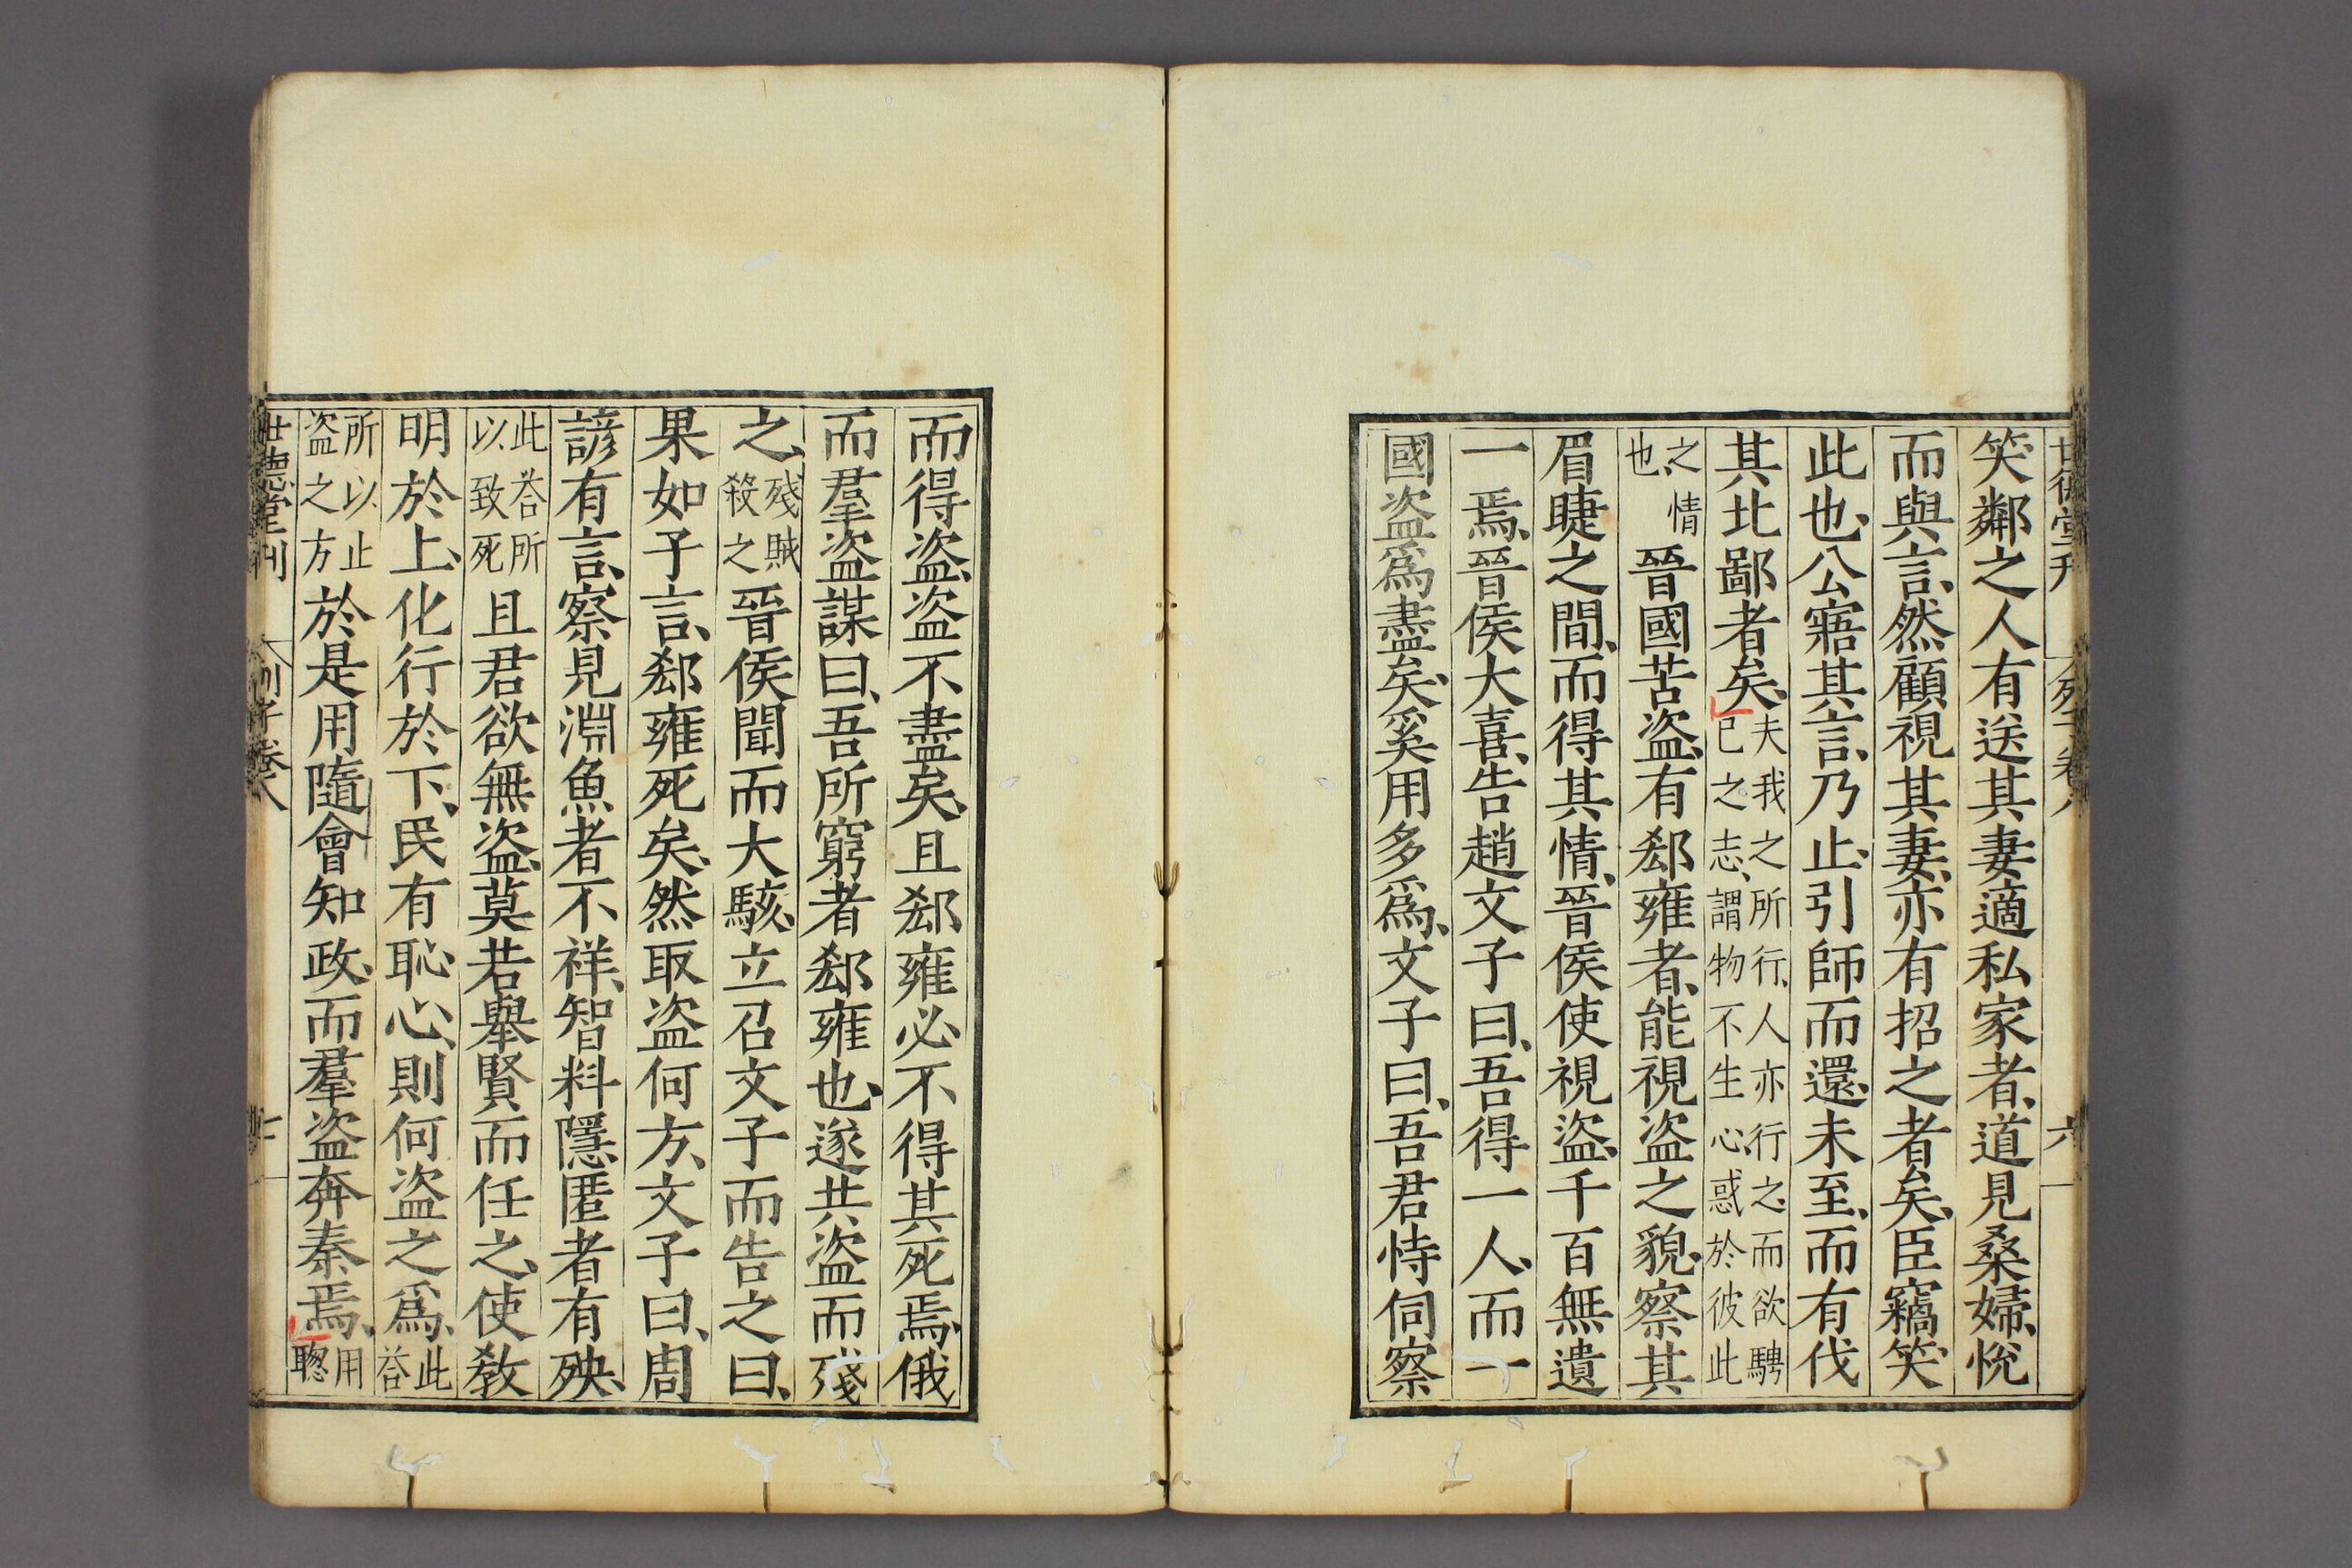 世德堂刊 列子卷八 六
笑、鄰之人有送其妻適私家者、道見桑婦、悅
而與言、然顧視其妻、亦有招之者矣、臣竊笑
此也、公寤其言、乃止、引師而還、未至、而有伐
其北鄙者矣、夫我之所行、人亦行之、而欲騁
己之志、謂物不生心、惑於彼此
之情
也、晉國苦盜、有郄雍者、能視盜之貌、察其
眉睫之間、而得其情、晉侯使視盜、千百無遺
一焉、晉侯大喜、告趙文子曰、吾得一人、而一
國盜爲盡矣、奚用多爲、文子曰、吾君恃伺察
而得盜、盜不盡矣、且郄雍必不得其死焉、俄
而羣盜謀曰、吾所窮者郄雍也、遂共盜而殘
之、殘賊
殺之晉侯聞而大駭、立召文子而告之曰、
果如子言、郄雍死矣、然取盜何方、文子曰、周
諺有言、察見淵魚者不祥、智料隱匿者有殃、
此荅所
以致死且君欲無盜、莫若舉賢而任之、使敎
明於上、化行於下、民有恥心、則何盜之爲、此
荅
所以止
盜之方於是用隨會知政、而羣盜奔秦焉、用
聦
世德堂刊 列子卷八 七